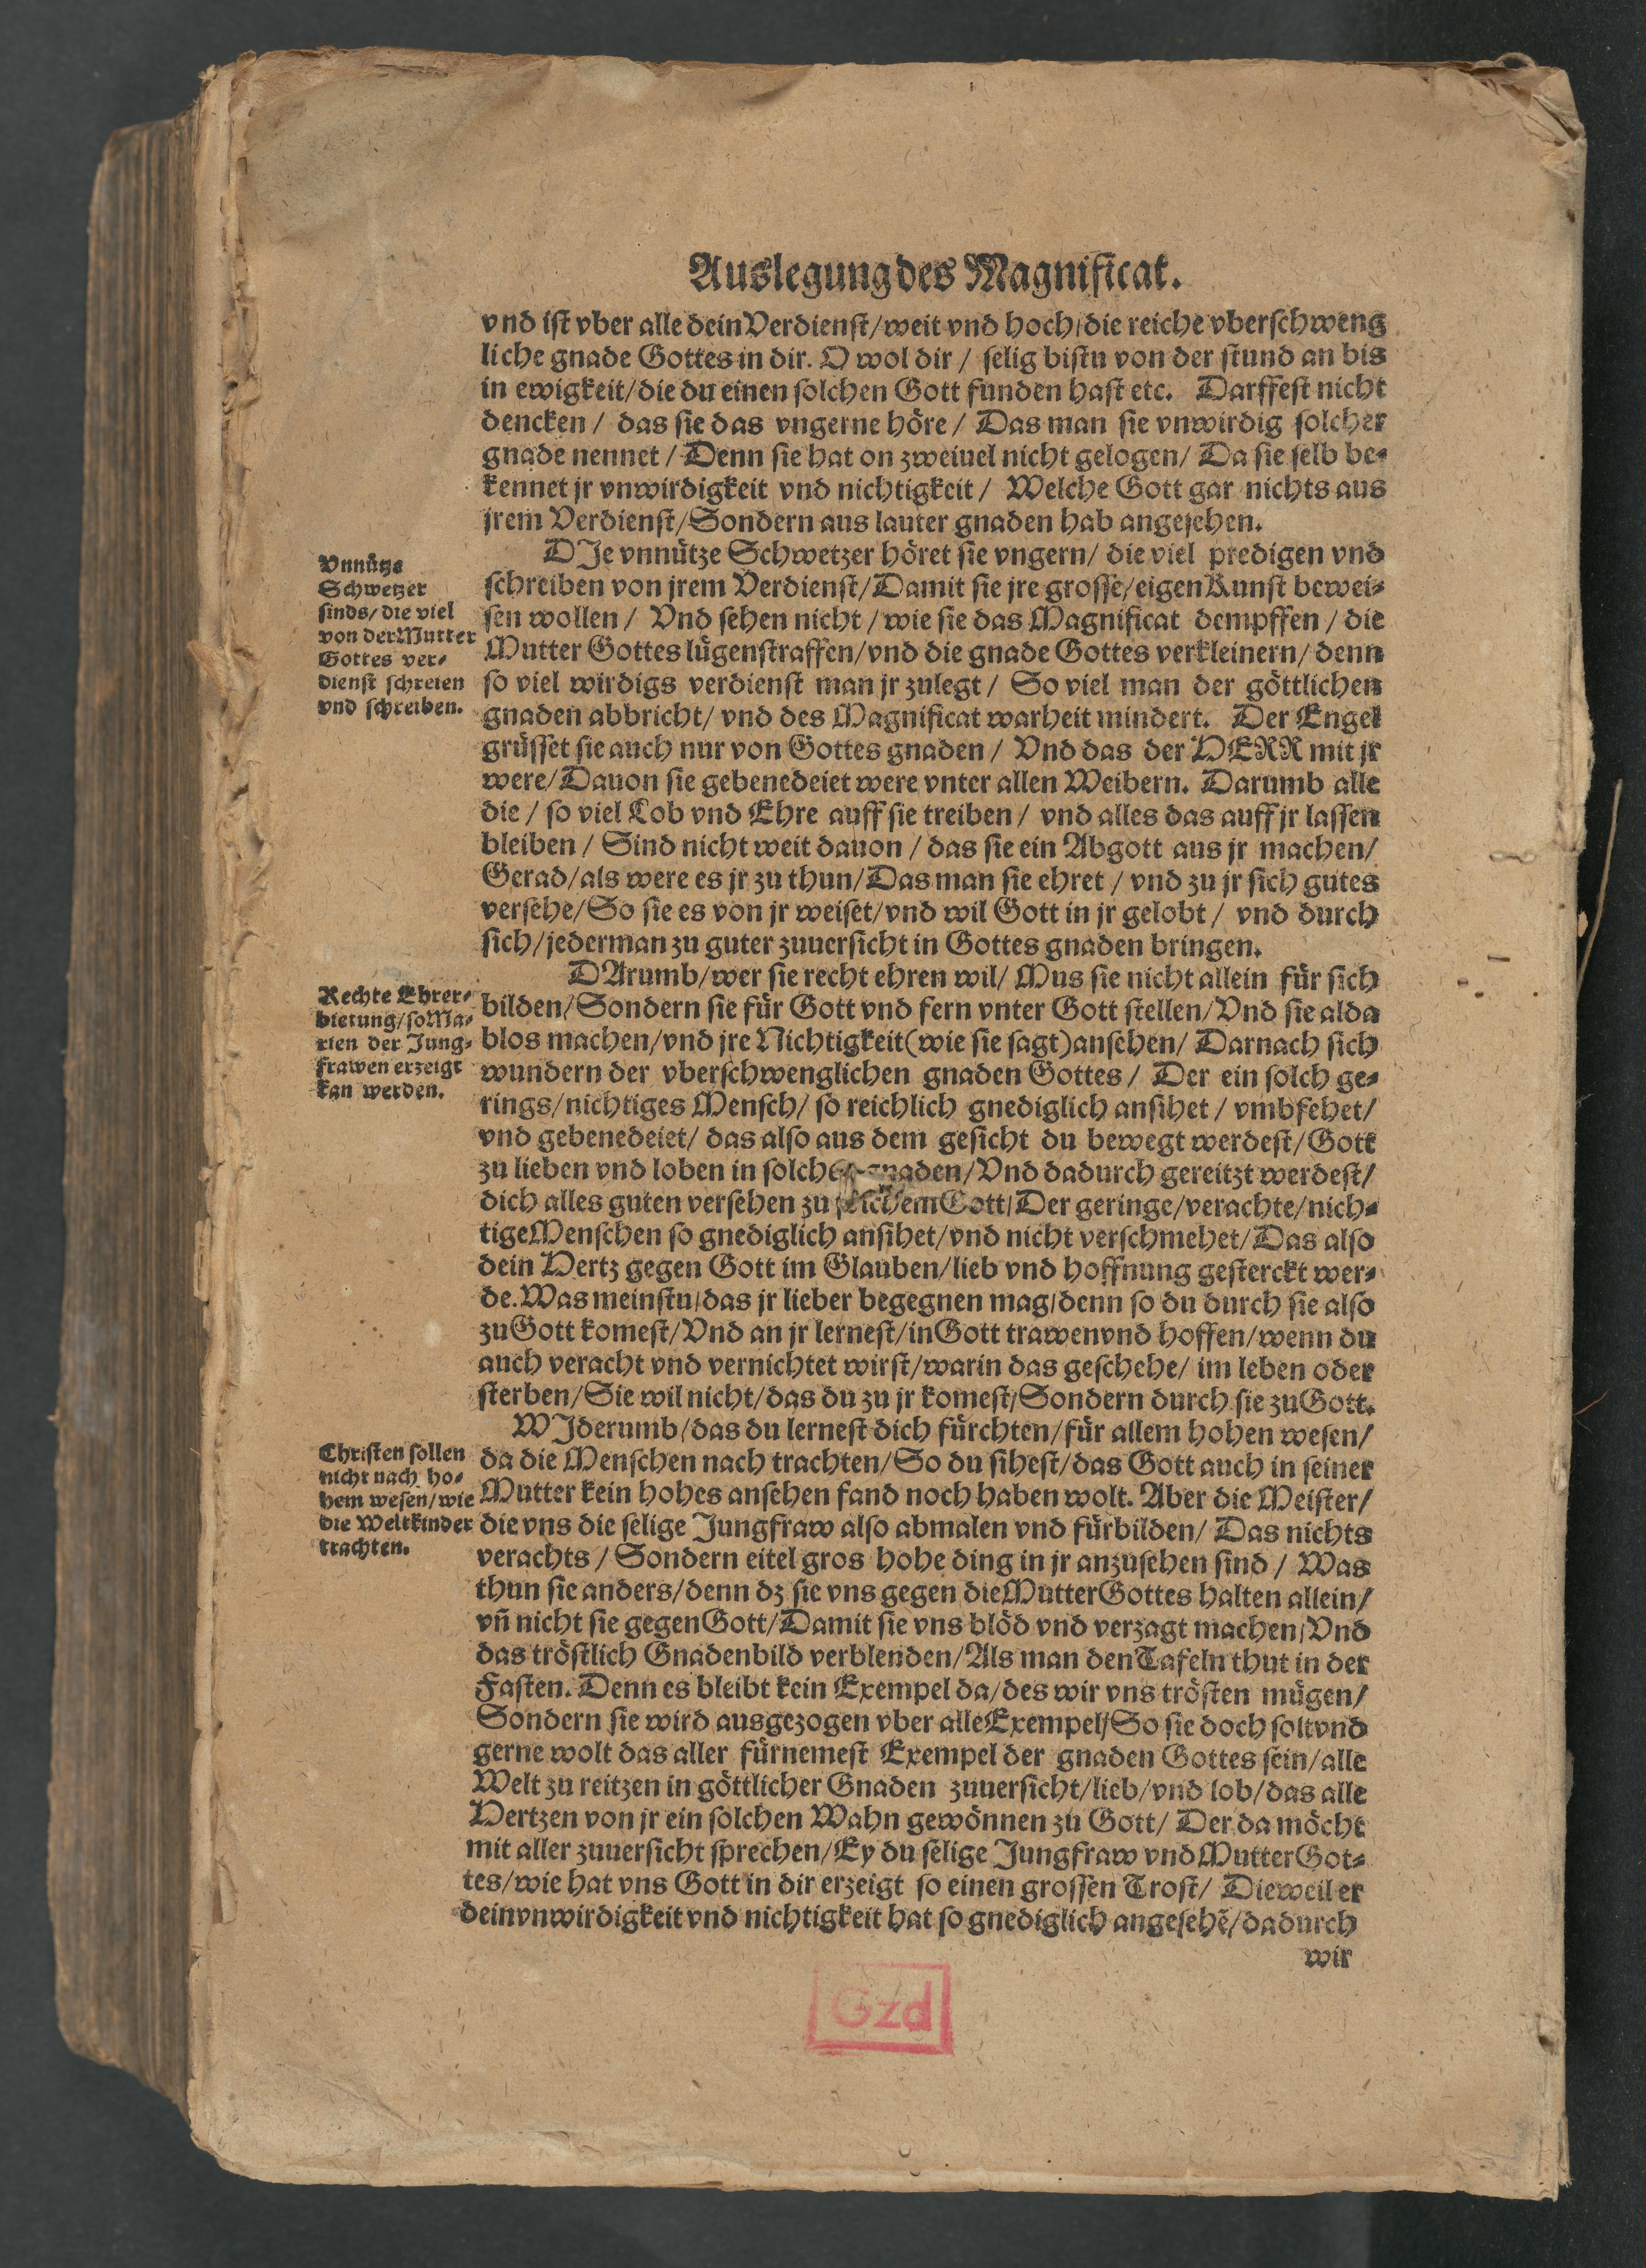 Auslegung des Magnificat.
vnd ist vber alle dein Verdienst/weit vnd hoch/die reiche vberschweng
liche gnade Gottes in dir. O wol dir / selig bistu von der stund an bis
in ewigkeit/die du einen solchen Gott funden hast etc. Darffest nicht
dencken / das sie das vngerne höre / Das man sie vnwirdig solcher
gnade nennet / Denn sie hat on zweiuel nicht gelogen/ Da sie selb be-
kennet jr vnwirdigkeit vnd nichtigkeit / Welche Gott gar nichts aus
jrem Verdienst/Sondern aus lauter gnaden hab angesehen.
Vnnütze
Schwetzer
sinds/die viel
von der Mutter
Gottes ver-
dienst schreien
vnd schreiben.
DJe vnnütze Schwetzer höret sie vngern/ die viel predigen vnd
schreiben von jrem Verdienst/Damit sie jre grosse/eigen Kunst bewei-
sen wollen / Vnd sehen nicht / wie sie das Magnificat dempffen / die
Mutter Gottes lügenstraffen/vnd die gnade Gottes verkleinern/ denn
so viel wirdigs verdienst man jr zulegt / So viel man der göttlichen
gnaden abbricht/ vnd des Magnificat warheit mindert. Der Engel
grüsset sie auch nur von Gottes gnaden / Vnd das der HERR mit jr
were/Dauon sie gebenedeiet were vnter allen Weibern. Darumb alle
die / so viel Lob vnd Ehre auff sie treiben / vnd alles das auff jr lassen
bleiben / Sind nicht weit dauon / das sie ein Abgott aus jr machen/
Gerad/als were es jr zu thun/Das man sie ehret / vnd zu jr sich gutes
versehe/So sie es von jr weiset/vnd wil Gott in jr gelobt / vnd durch
sich/jederman zu guter zuuersicht in Gottes gnaden bringen.
Rechte Ehrer-
bietung/so Ma-
rien der Jung-
frawen erzeigt
kan werden.
DArumb/wer sie recht ehren wil/ Mus sie nicht allein für sich
bilden/Sondern sie für Gott vnd fern vnter Gott stellen/Vnd sie alda
blos machen/vnd jre Nichtigkeit(wie sie sagt)ansehen/ Darnach sich
wundern der vberschwenglichen gnaden Gottes / Der ein solch ge-
rings/nichtiges Mensch/ so reichlich gnediglich ansihet / vmbfehet/
vnd gebenedeiet/ das also aus dem gesicht du bewegt werdest/Gott
zu lieben vnd loben in solchen gnaden/Vnd dadurch gereitzt werdest/
dich alles guten versehen zu solchem Gott/Der geringe/verachte/nich-
tige Menschen so gnediglich ansihet/vnd nicht verschmehet/Das also
dein Hertz gegen Gott im Glauben/lieb vnd hoffnung gesterckt wer-
de. Was meinstu/das jr lieber begegnen mag/denn so du durch sie also
zu Gott komest/Vnd an jr lernest/in Gott trawen vnd hoffen/wenn du
auch veracht vnd vernichtet wirst/warin das geschehe/ im leben oder
sterben/Sie wil nicht/das du zu jr komest/Sondern durch sie zu Gott.
Christen sollen
nicht nach ho-
hem wesen/wie
die Weltkinder
trachten.
WJderumb/das du lernest dich fürchten/für allem hohen wesen/
da die Menschen nach trachten/So du sihest/das Gott auch in seiner
Mutter kein hohes ansehen fand noch haben wolt. Aber die Meister/
die vns die selige Jungfraw also abmalen vnd fürbilden/ Das nichts
verachts / Sondern eitel gros hohe ding in jr anzusehen sind / Was
thun sie anders/denn dz sie vns gegen die Mutter Gottes halten allein/
vñ nicht sie gegen Gott/Damit sie vns blöd vnd verzagt machen/Vnd
das tröstlich Gnadenbild verblenden/Als man den Tafeln thut in der
Fasten. Denn es bleibt kein Exempel da/des wir vns trösten mügen/
Sondern sie wird ausgezogen vber alle Exempel/So sie doch solt vnd
gerne wolt das aller fürnemest Exempel der gnaden Gottes sein/alle
Welt zu reitzen in göttlicher Gnaden zuuersicht/lieb/vnd lob/das alle
Hertzen von jr ein solchen Wahn gewönnen zu Gott/ Der da möcht
mit aller zuuersicht sprechen/Ey du selige Jungfraw vnd Mutter Got-
tes/wie hat vns Gott in dir erzeigt so einen grossen Trost/ Dieweil er
dein vnwirdigkeit vnd nichtigkeit hat so gnediglich angesehẽ/dadurch
wir
Gzd